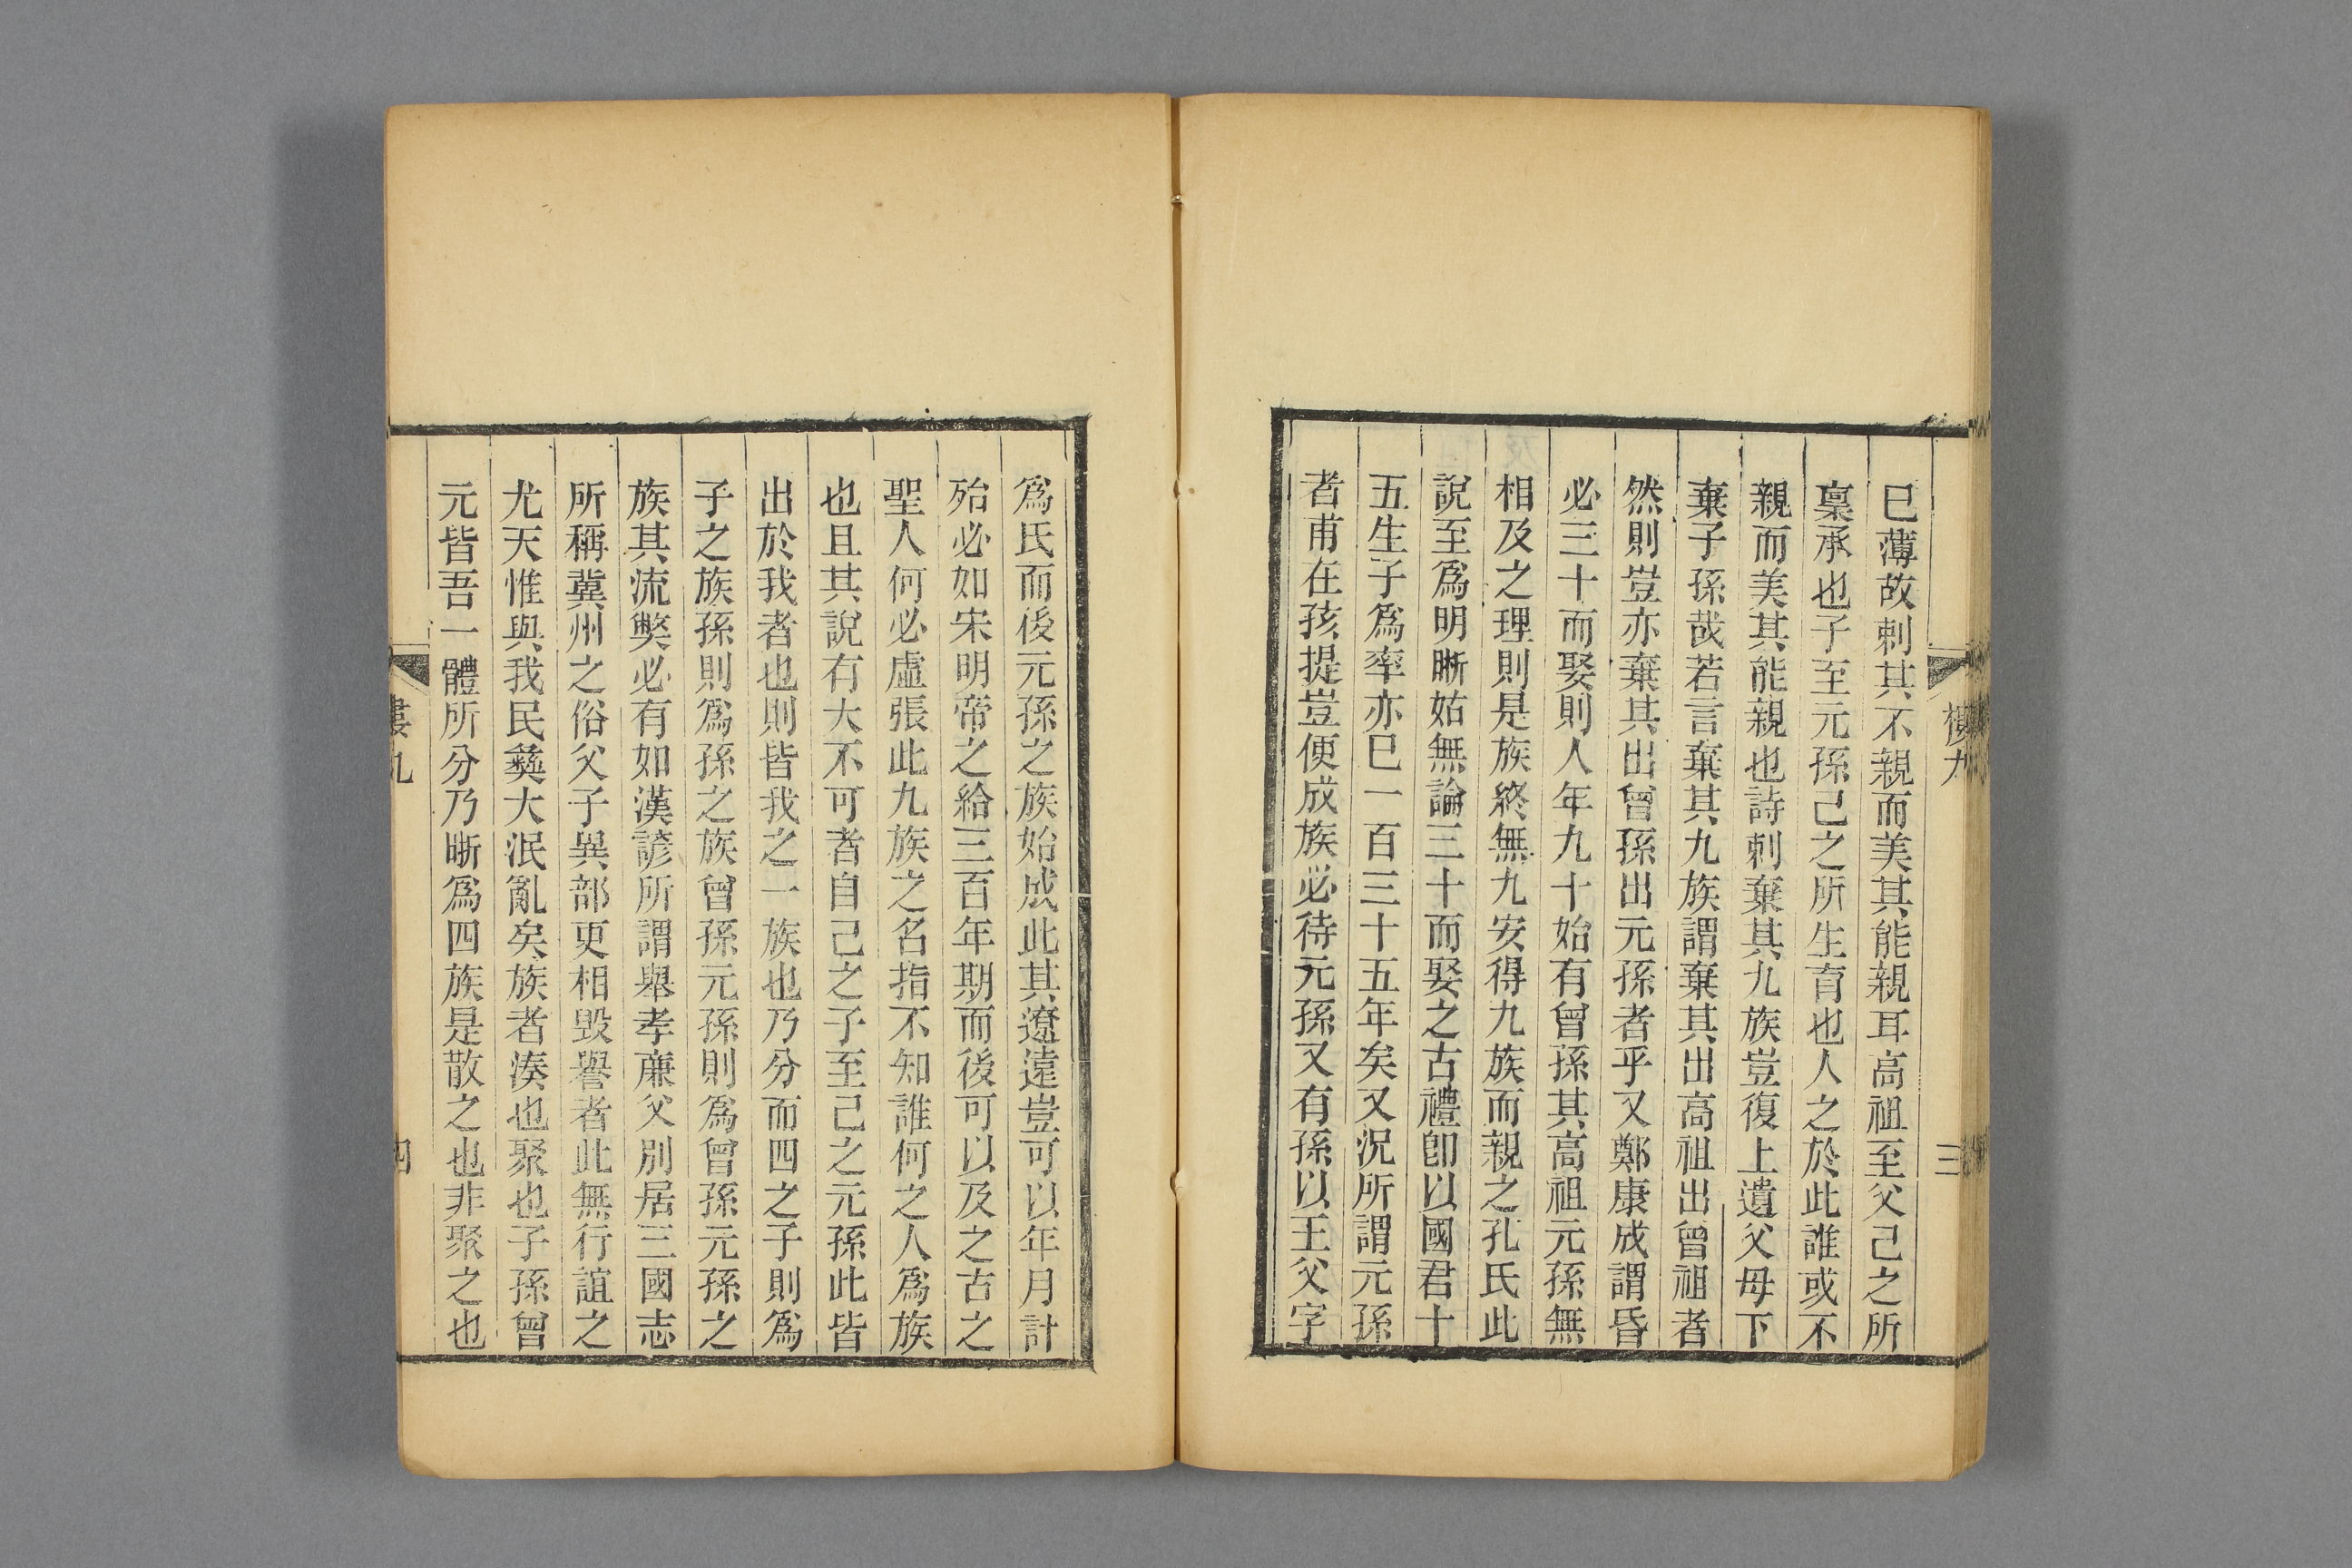 巳薄故刺其不親而美其能親耳高祖至父己之所
稟承也子至元孫己之所生育也人之於此誰或不
親而美其能親也詩刺棄其九族豈復上遺父母下
棄子孫哉若言棄其九族謂棄其出高祖出曾祖者
然則豈亦棄其出曾孫出元孫者乎又鄭康成謂昏
必三十而娶則人年九十始有曾孫其高祖元孫無
相及之理則是族終無九安得九族而親之孔氏此
說至爲明晰姑無論三十而娶之古禮卽以國君十
五生子爲率亦巳一百三十五年矣又況所謂元孫
者甫在孩提豈便成族必待元孫又有孫以王父字
三
爲氏而後元孫之族始成此其遼遠豈可以年月計
殆必如宋明帝之給三百年期而後可以及之古之
聖人何必虛張此九族之名指不知誰何之人爲族
也且其說有大不可者自己之子至己之元孫此皆
出於我者也則皆我之一族也乃分而四之子則爲
子之族孫則爲孫之族曾孫元孫則爲曾孫元孫之
族其流弊必有如漢諺所謂舉孝廉父別居三國志
所稱冀州之俗父子異部更相毀譽者此無行誼之
尤天惟與我民彝大泯亂矣族者湊也聚也子孫曾
元皆吾一體所分乃晰爲四族是散之也非聚之也
四